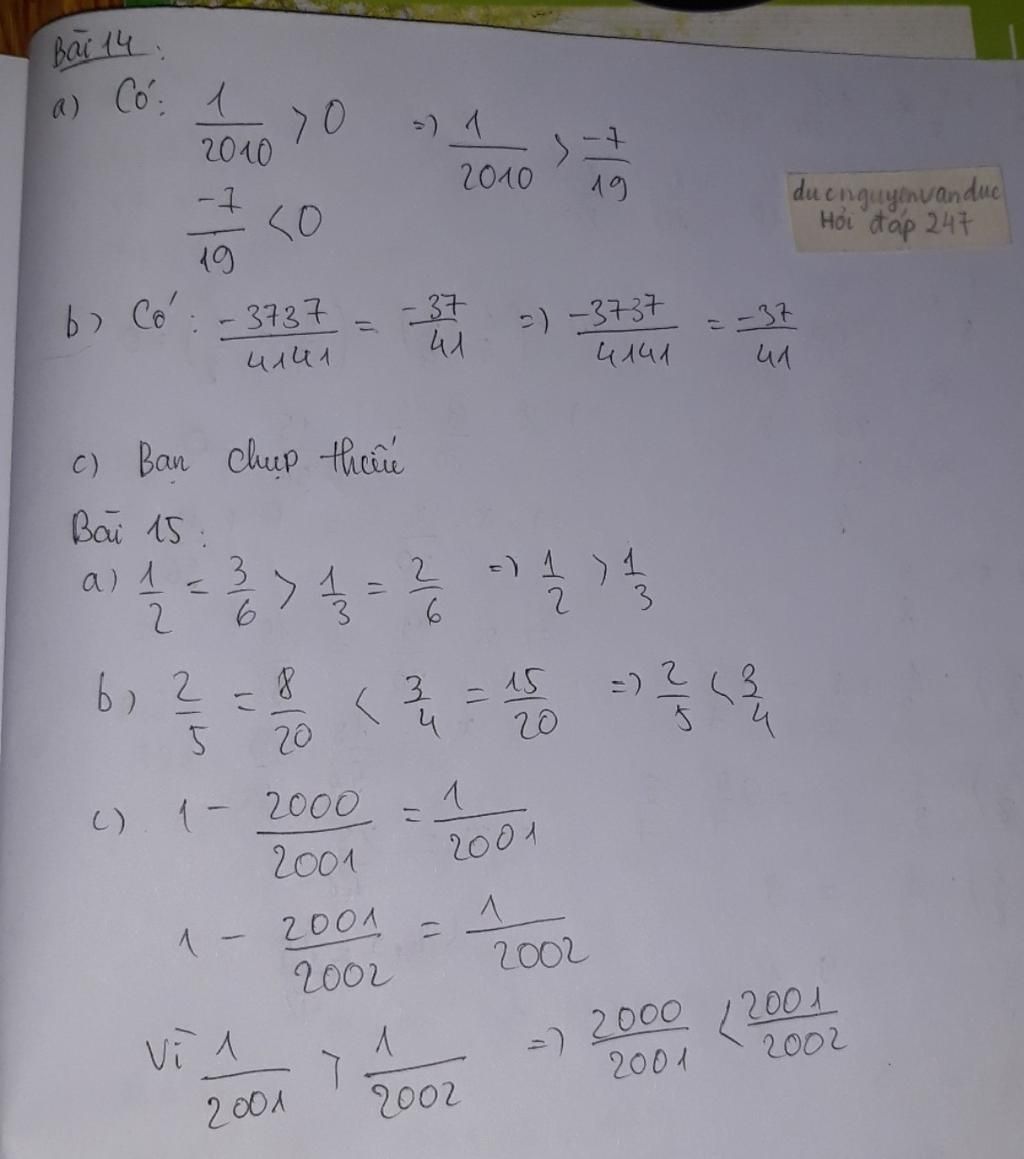 Bài 14:
a) Có: 1/2010 > 0 => 1/2010 > -7/19
-7/19 < 0
ducnguyenvanduc
Hỏi đáp 247
b) Có: -3737/4141 = -37/41 => -3737/4141 = -37/41
c) Bạn chụp thiếu
Bài 15:
a) 1/2 = 3/6 > 1/3 = 2/6 => 1/2 > 1/3
b) 2/5 = 8/20 < 3/4 = 15/20 => 2/5 < 3/4
c) 1 - 2000/2001 = 1/2001
1 - 2001/2002 = 1/2002
Vì 1/2001 > 1/2002 => 2000/2001 < 2001/2002